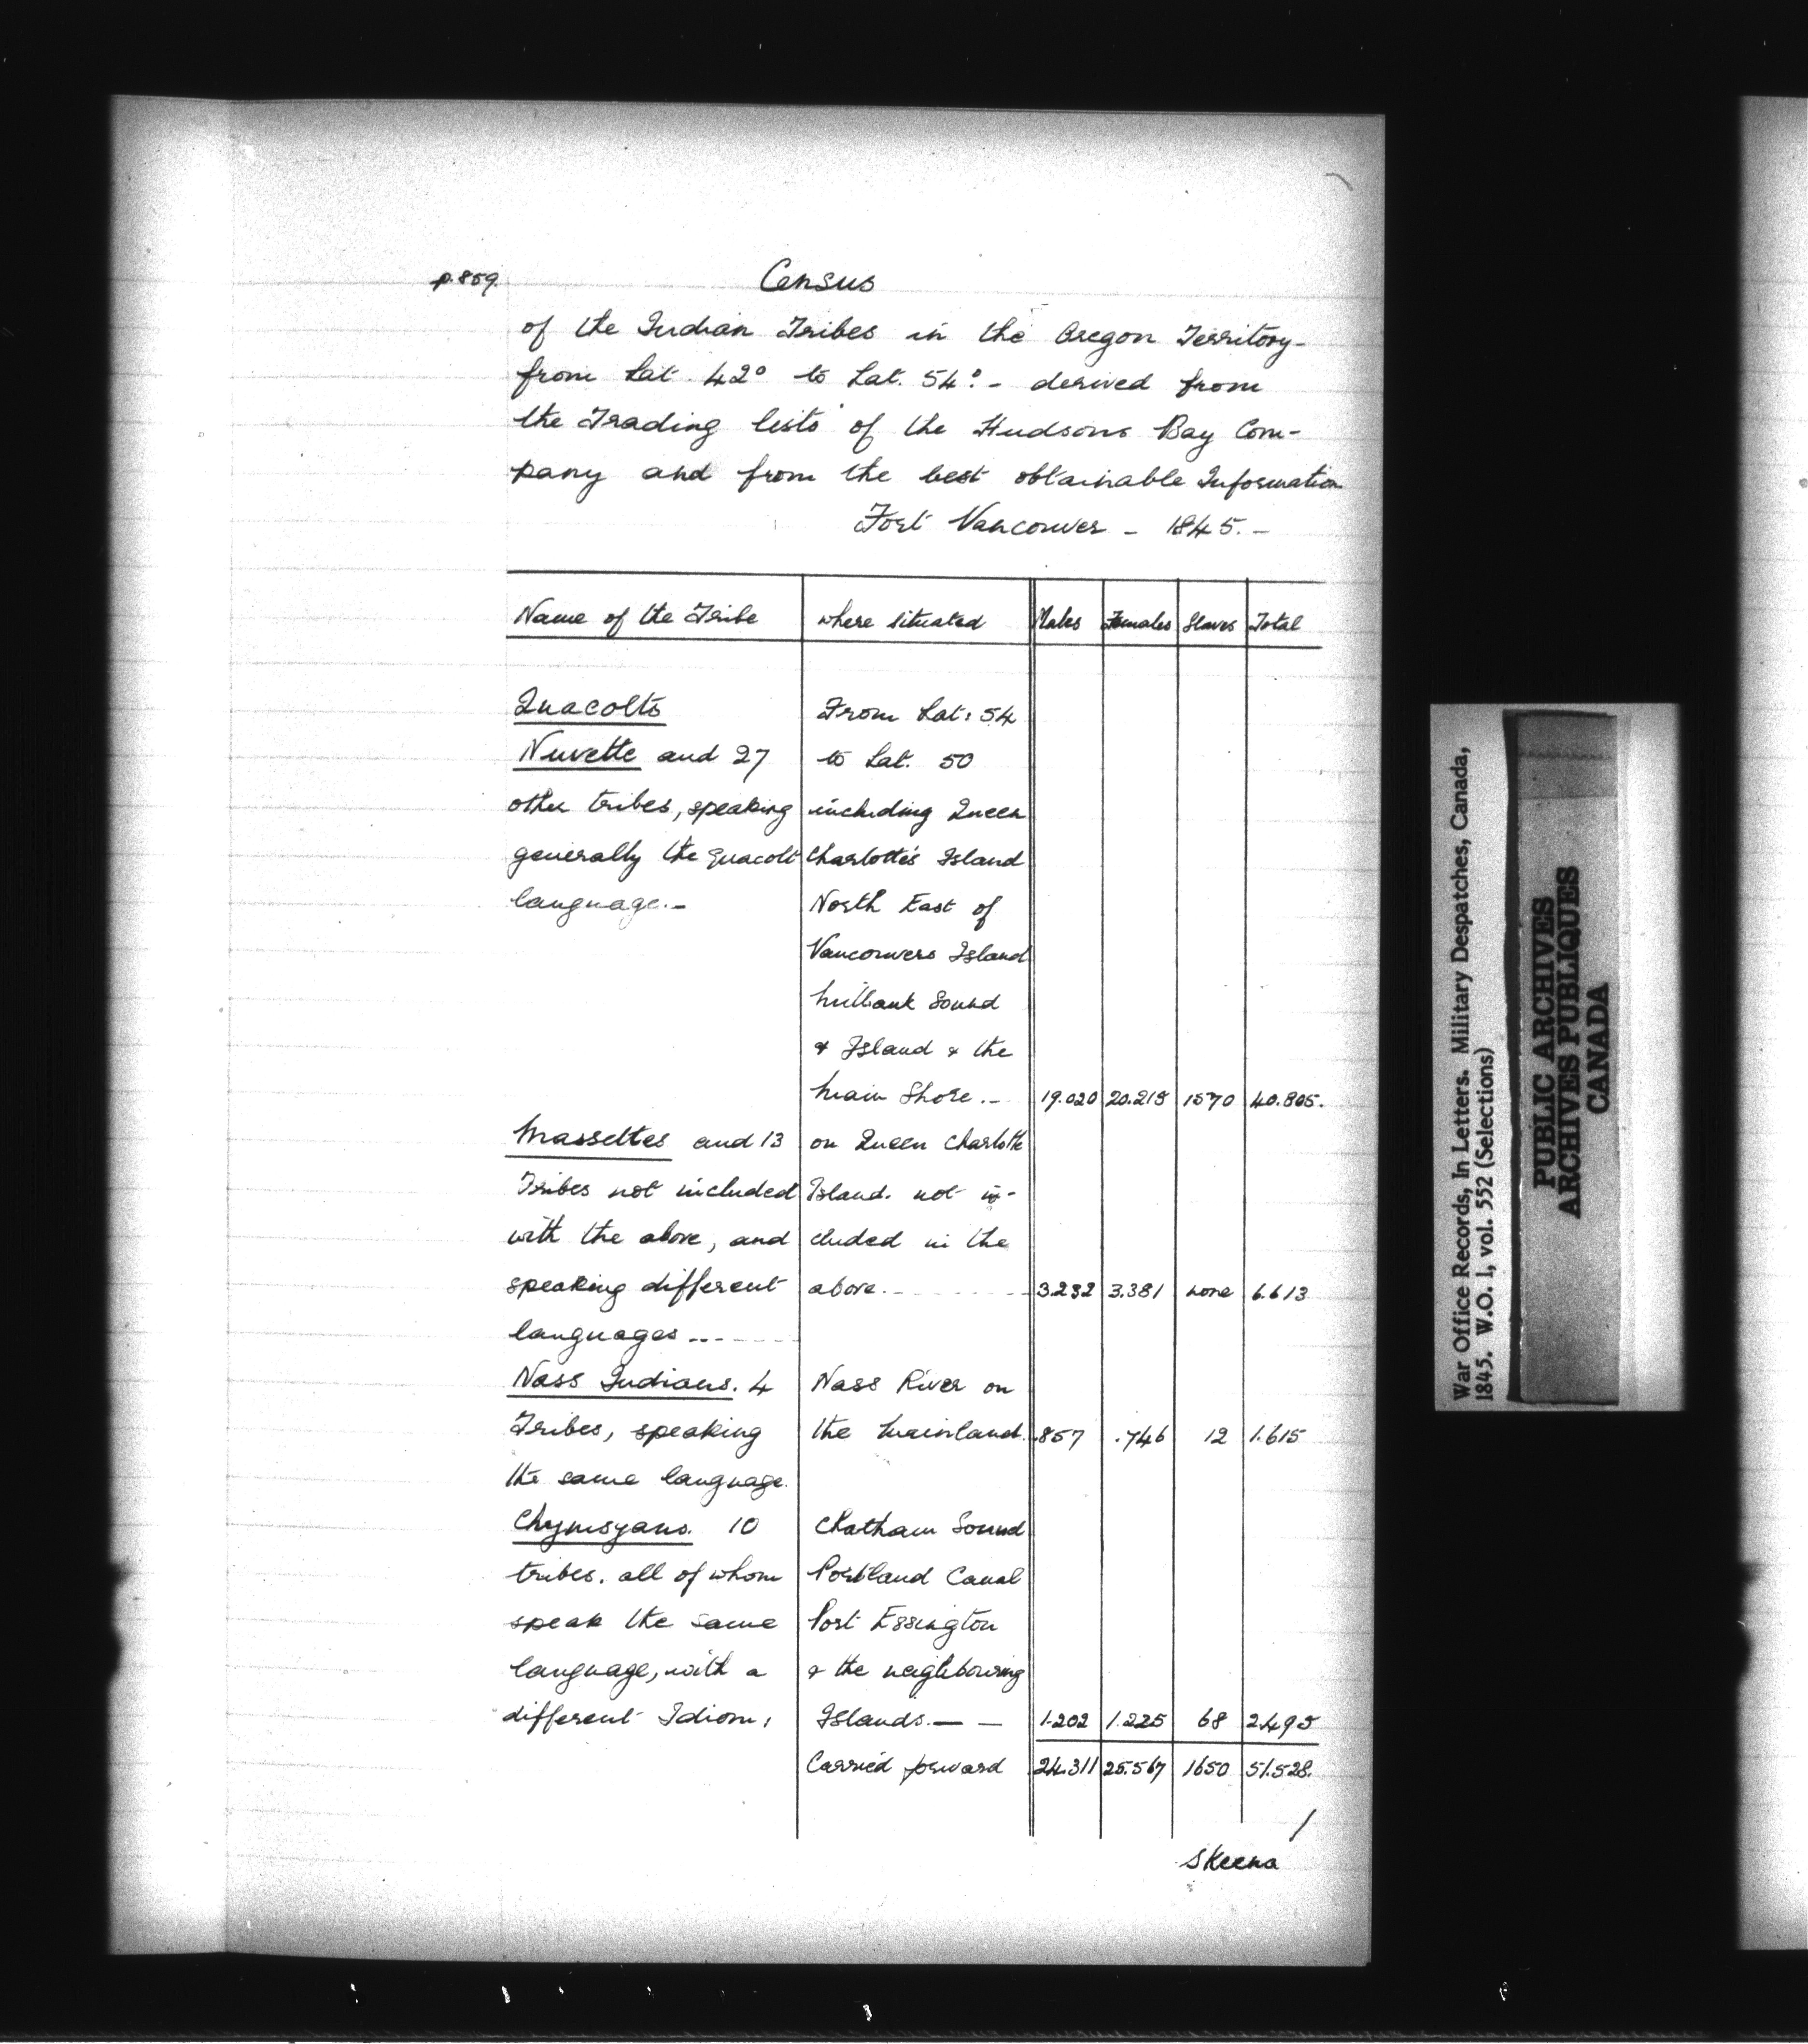 p.859.
Census
of the Indian Tribes in the Oregon Territory-
from Lat. 42° to Lat. 54°. - derived from
the Trading lists of the Hudsons Bay Com-
pany and from the best obtainable Information
Fort Vancouver - 1845. -
Name of the Tribe | where situated | Males | Females | Slaves | Total
Quacolts | From Lat: 54
Nuvette and 27 | to Lat. 50
other tribes, speaking | including Queen
generally the Quacolt | Charlotte's Island
language.- | North East of
Vancouvers Island
Milbank Sound
& Island & the
Main Shore.- | 19.020 | 20.215 | 1570 | 40.805.
Massettes and 13 | on Queen Charlotte
Tribes not included | Island. not in-
with the above, and | cluded in the
speaking different | above. | 3.232 | 3.381 | none | 6.613
languages...
Nass Indians. 4 | Nass River on
Tribes, speaking | the Mainland. | .857 | .746 | 12 | 1.615
the same language.
Chymsyans. 10 | Chatham Sound
tribes. all of whom | Portland Canal
speak the same | Port Essington
language, with a | & the neighbouring
different Idiom, | Islands.— — | 1.202 | 1.225 | 68 | 2.495
Carried forward | 24.311 | 25.567 | 1650 | 51.528.
/
Skeena
War Office Records, In Letters. Military Despatches, Canada,
1845. W.O. 1, vol. 552 (Selections)
PUBLIC ARCHIVES
ARCHIVES PUBLIQUES
CANADA